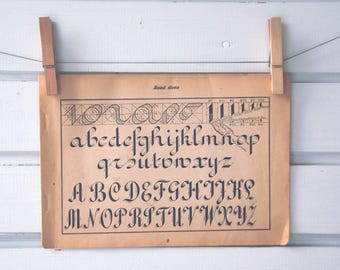 abcdefghijklmnop
qrstuvwxyz
ABCDEFGHIJKL
MNOPQRSTUVWXYZ